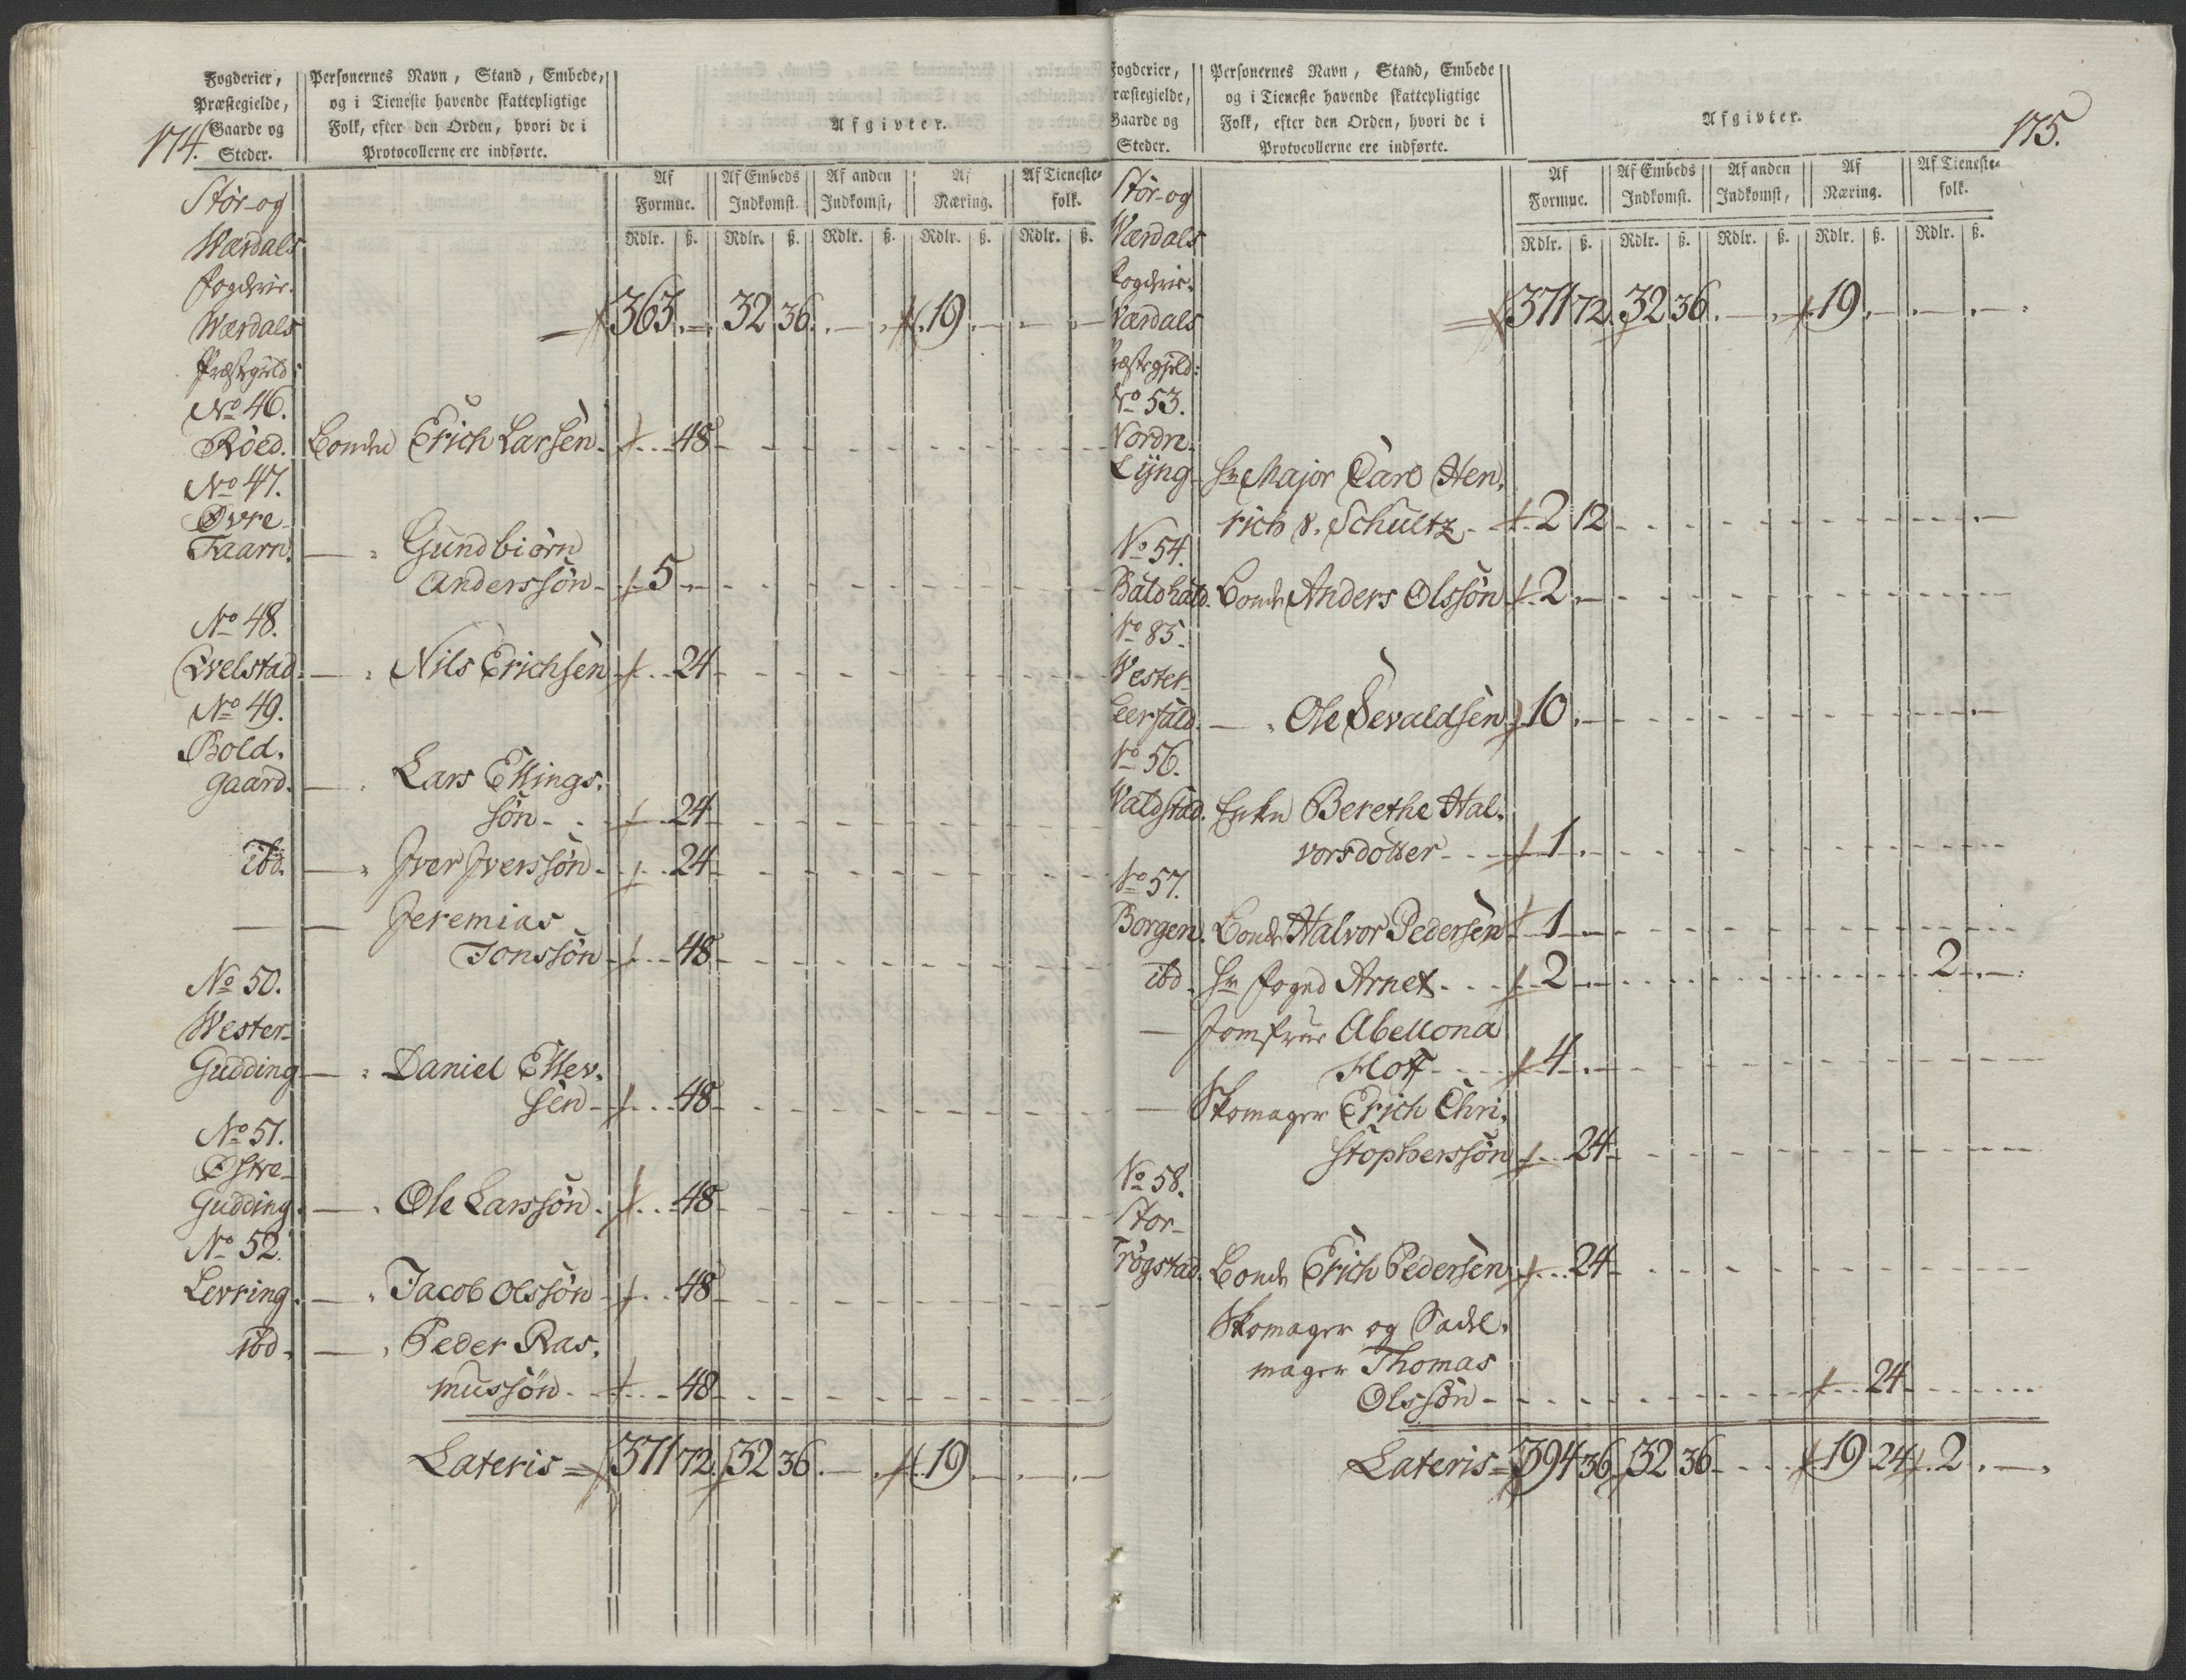 174.
Fogderier, Præstegielde, Gaarde og Steder.
Personernes Navn, Stand, Embede, og i Tieneste havende skattepligtige Folk, efter den Orden, hvori de i Protocollerne ere indførte.
Afgivter.
Af Formue. Af Embeds Indkomst. Af anden Indkomst, Af Næring. Af Tieneste-folk.
Rdlr. ß. Rdlr. ß. Rdlr. ß. Rdlr. ß. Rdlr. ß.
Stör-og
Wærdals
Fogderie.
Wærdals 363. 32 36. 19
Præstegield:
No 46.
Röed. Bonde Erich Larsen 48
No 47.
Øvre
Taarn. — Gundbiörn
Anderssön 5
No 48.
Qvelstad. — Nils Erichsen 24
No 49.
Bold,
gaard. — Lars Ellings,
sön 24
ibd. — Iver Iverssön 24
— — Jeremias
Jonssön 48
No 50.
Wester-
Gudding — Daniel Ellev,
sen 48
No 51.
Østre
Gudding. — Ole Larssön 48
No 52.
Levring. — Jacob Olssön 48
ibd. — Peder Ras,
mussön 48
Lateris = 371 72. 32 36. 19
175.
Fogderier, Præstegielde, Gaarde og Steder.
Personernes Navn, Stand, Embede og i Tieneste havende skattepligtige Folk, efter den Orden, hvori de i Protocollerne ere indførte.
Afgivter.
Af Formue. Af Embeds Indkomst. Af anden Indkomst, Af Næring. Af Tieneste-folk.
Rdlr. ß. Rdlr. ß. Rdlr. ß. Rdlr. ß. Rdlr. ß.
Stör-og
Wærdals
Fogderie.
Wærdals 371 72. 32 36. 19
Præstegjeld:
No 53.
Nordre
Lÿng Hr Major Carl Hen,
rich v. Schultz 2 12
No 54.
Baldhald. Bonde Anders Olssön 2
No 85.
Wester
Leerfald. — Ole Sevaldsen 10
No 56.
Waldstad. Enke Berethe Hal,
vorsdotter 1
No 57.
Borgen. Bonde Halvor Pedersen 1
ibd. Hr Foged Arnet 2 2
— Jomfrue Abellona
Hoff 4
— Skomager Erich Chri,
stopherssön 24
No 58.
Stor-
Trögstad. Bonde Erich Pedersen 24
Skomager og Sadel,
mager Thomas
Olssön 24
Lateris = 394 36 32 36 19 24 2